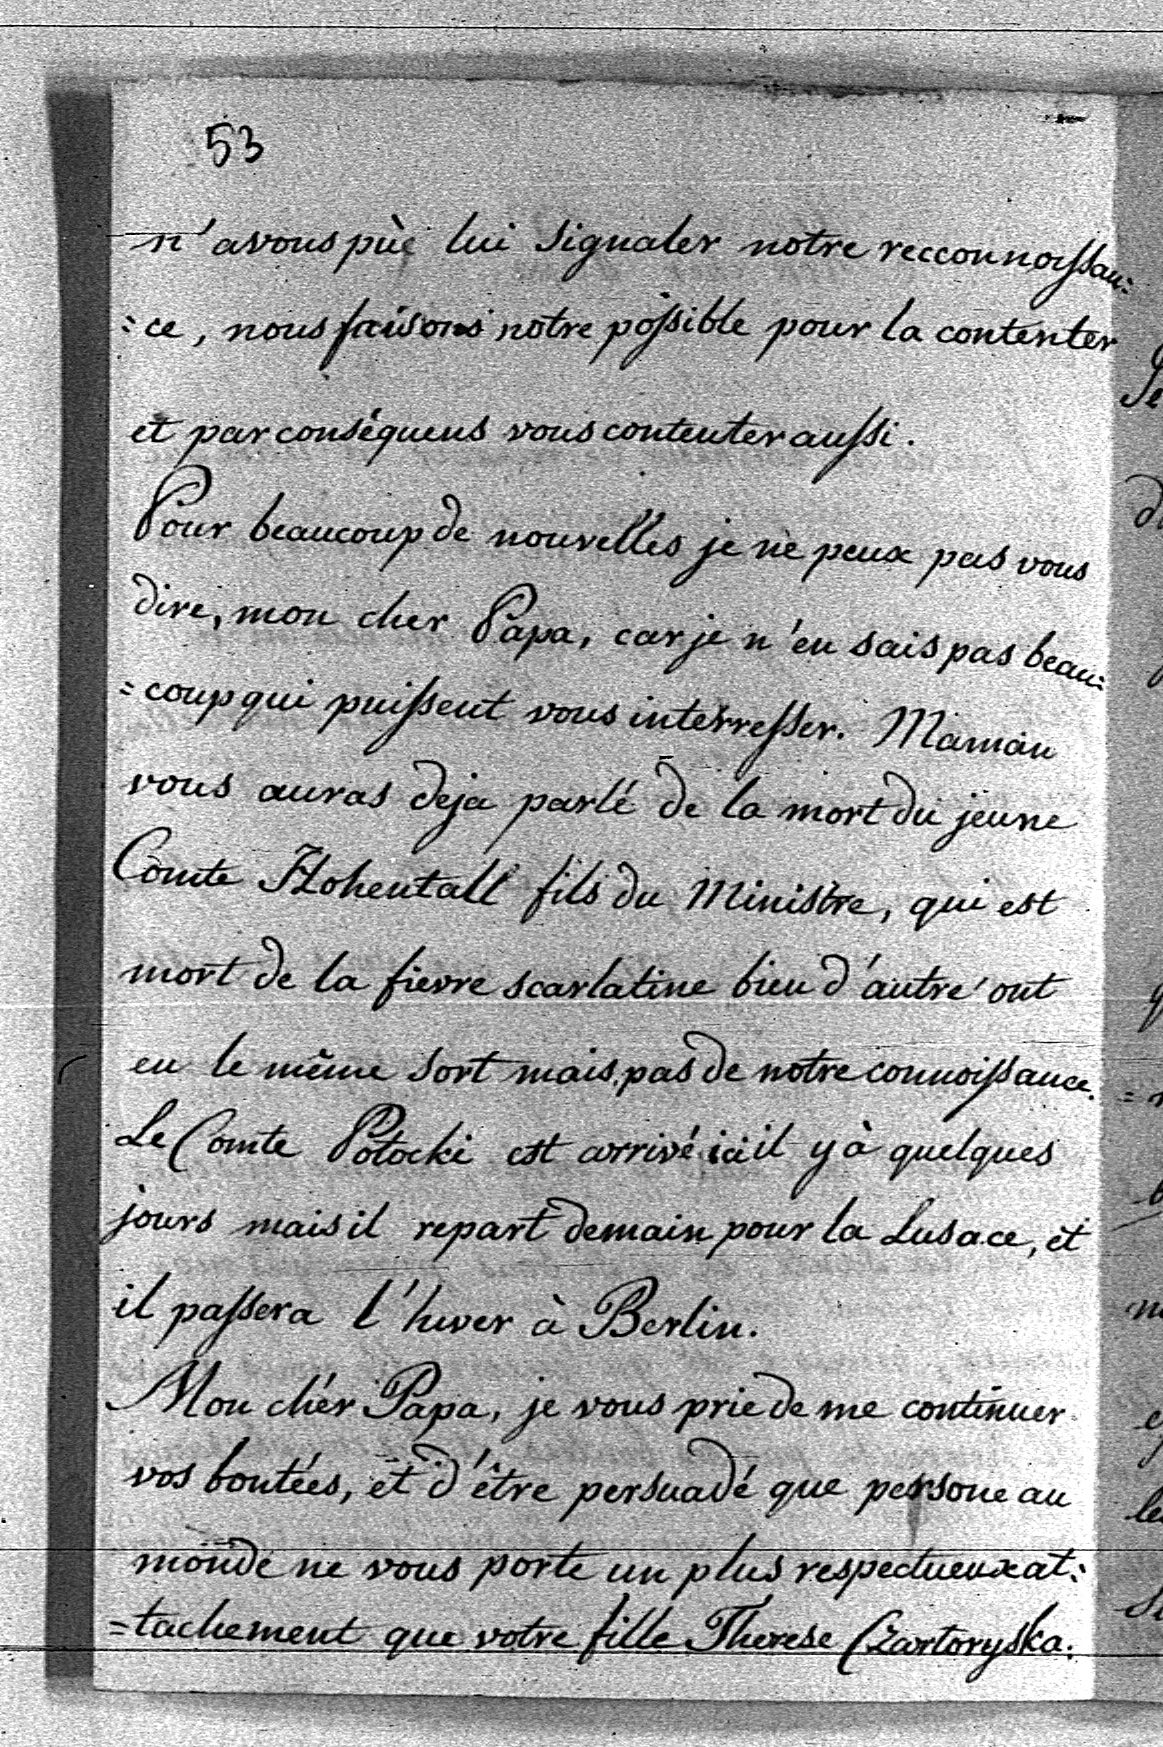 53
n'avons pùe lui signaler notre recconnoissan=
=ce, nous faisons notre possible pour la contenter
et par conséquens vous contenter aussi.
Pour beaucoup de nouvelles je ne peux pas vous
dire, mon cher Papa, car je n'en sais pas beau=
=coup qui puissent vous interresser. Maman
vous auras deja parlé de la mort du jeune
Comte Hohentall fils du Ministre, qui est
mort de la fievre scarlatine bien d'autre ont
eu le même sort mais pas de notre connoissance.
Le Comte Potocki est arrivé ici il y à quelques
jours mais il repart demain pour la Lusace, et
il passera l'hiver à Berlin.
Mon chér Papa, je vous prie de me continuer
vos bontées, et d'être persuadé que persone au
monde ne vous porte un plus respectueux at=
=tachement que votre fille Therese Czartoryska.